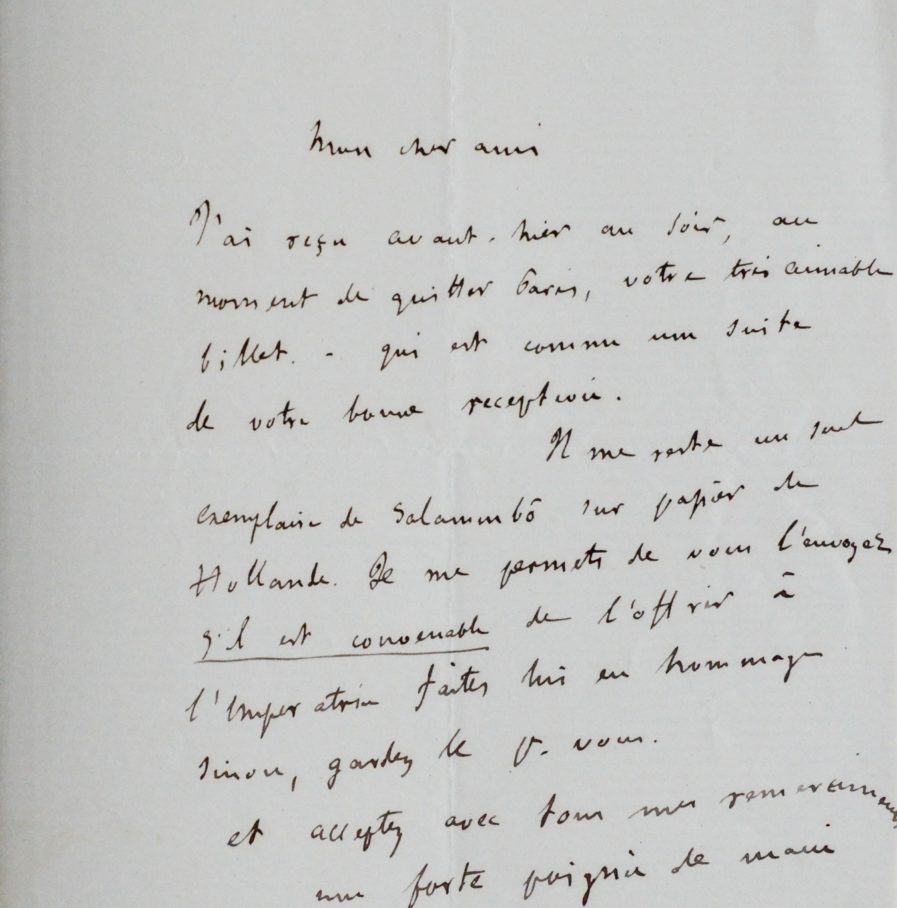 Mon cher ami
J'ai reçu avant-hier au soir, au
moment de quitter Paris, votre très aimable
billet. - qui est comme une suite
de votre bonne reception.
Il me reste un seul
exemplaire de Salammbô sur papier de
Hollande. Je me permets de vous l'envoyer
s'il est convenable de l'offrir à
l'Imperatrice faites lui en hommage
sinon, gardez le p. vous.
et acceptez avec tous mes remerciments
une forte poignée de main